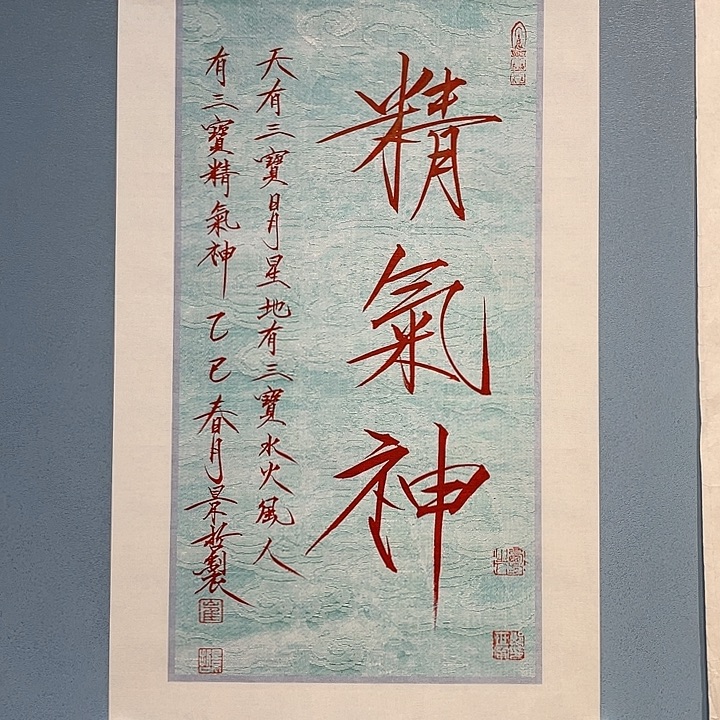 精氣神
天有三寶日月星地有三寶水火風人
有三寶精氣神乙巳春月景哲製